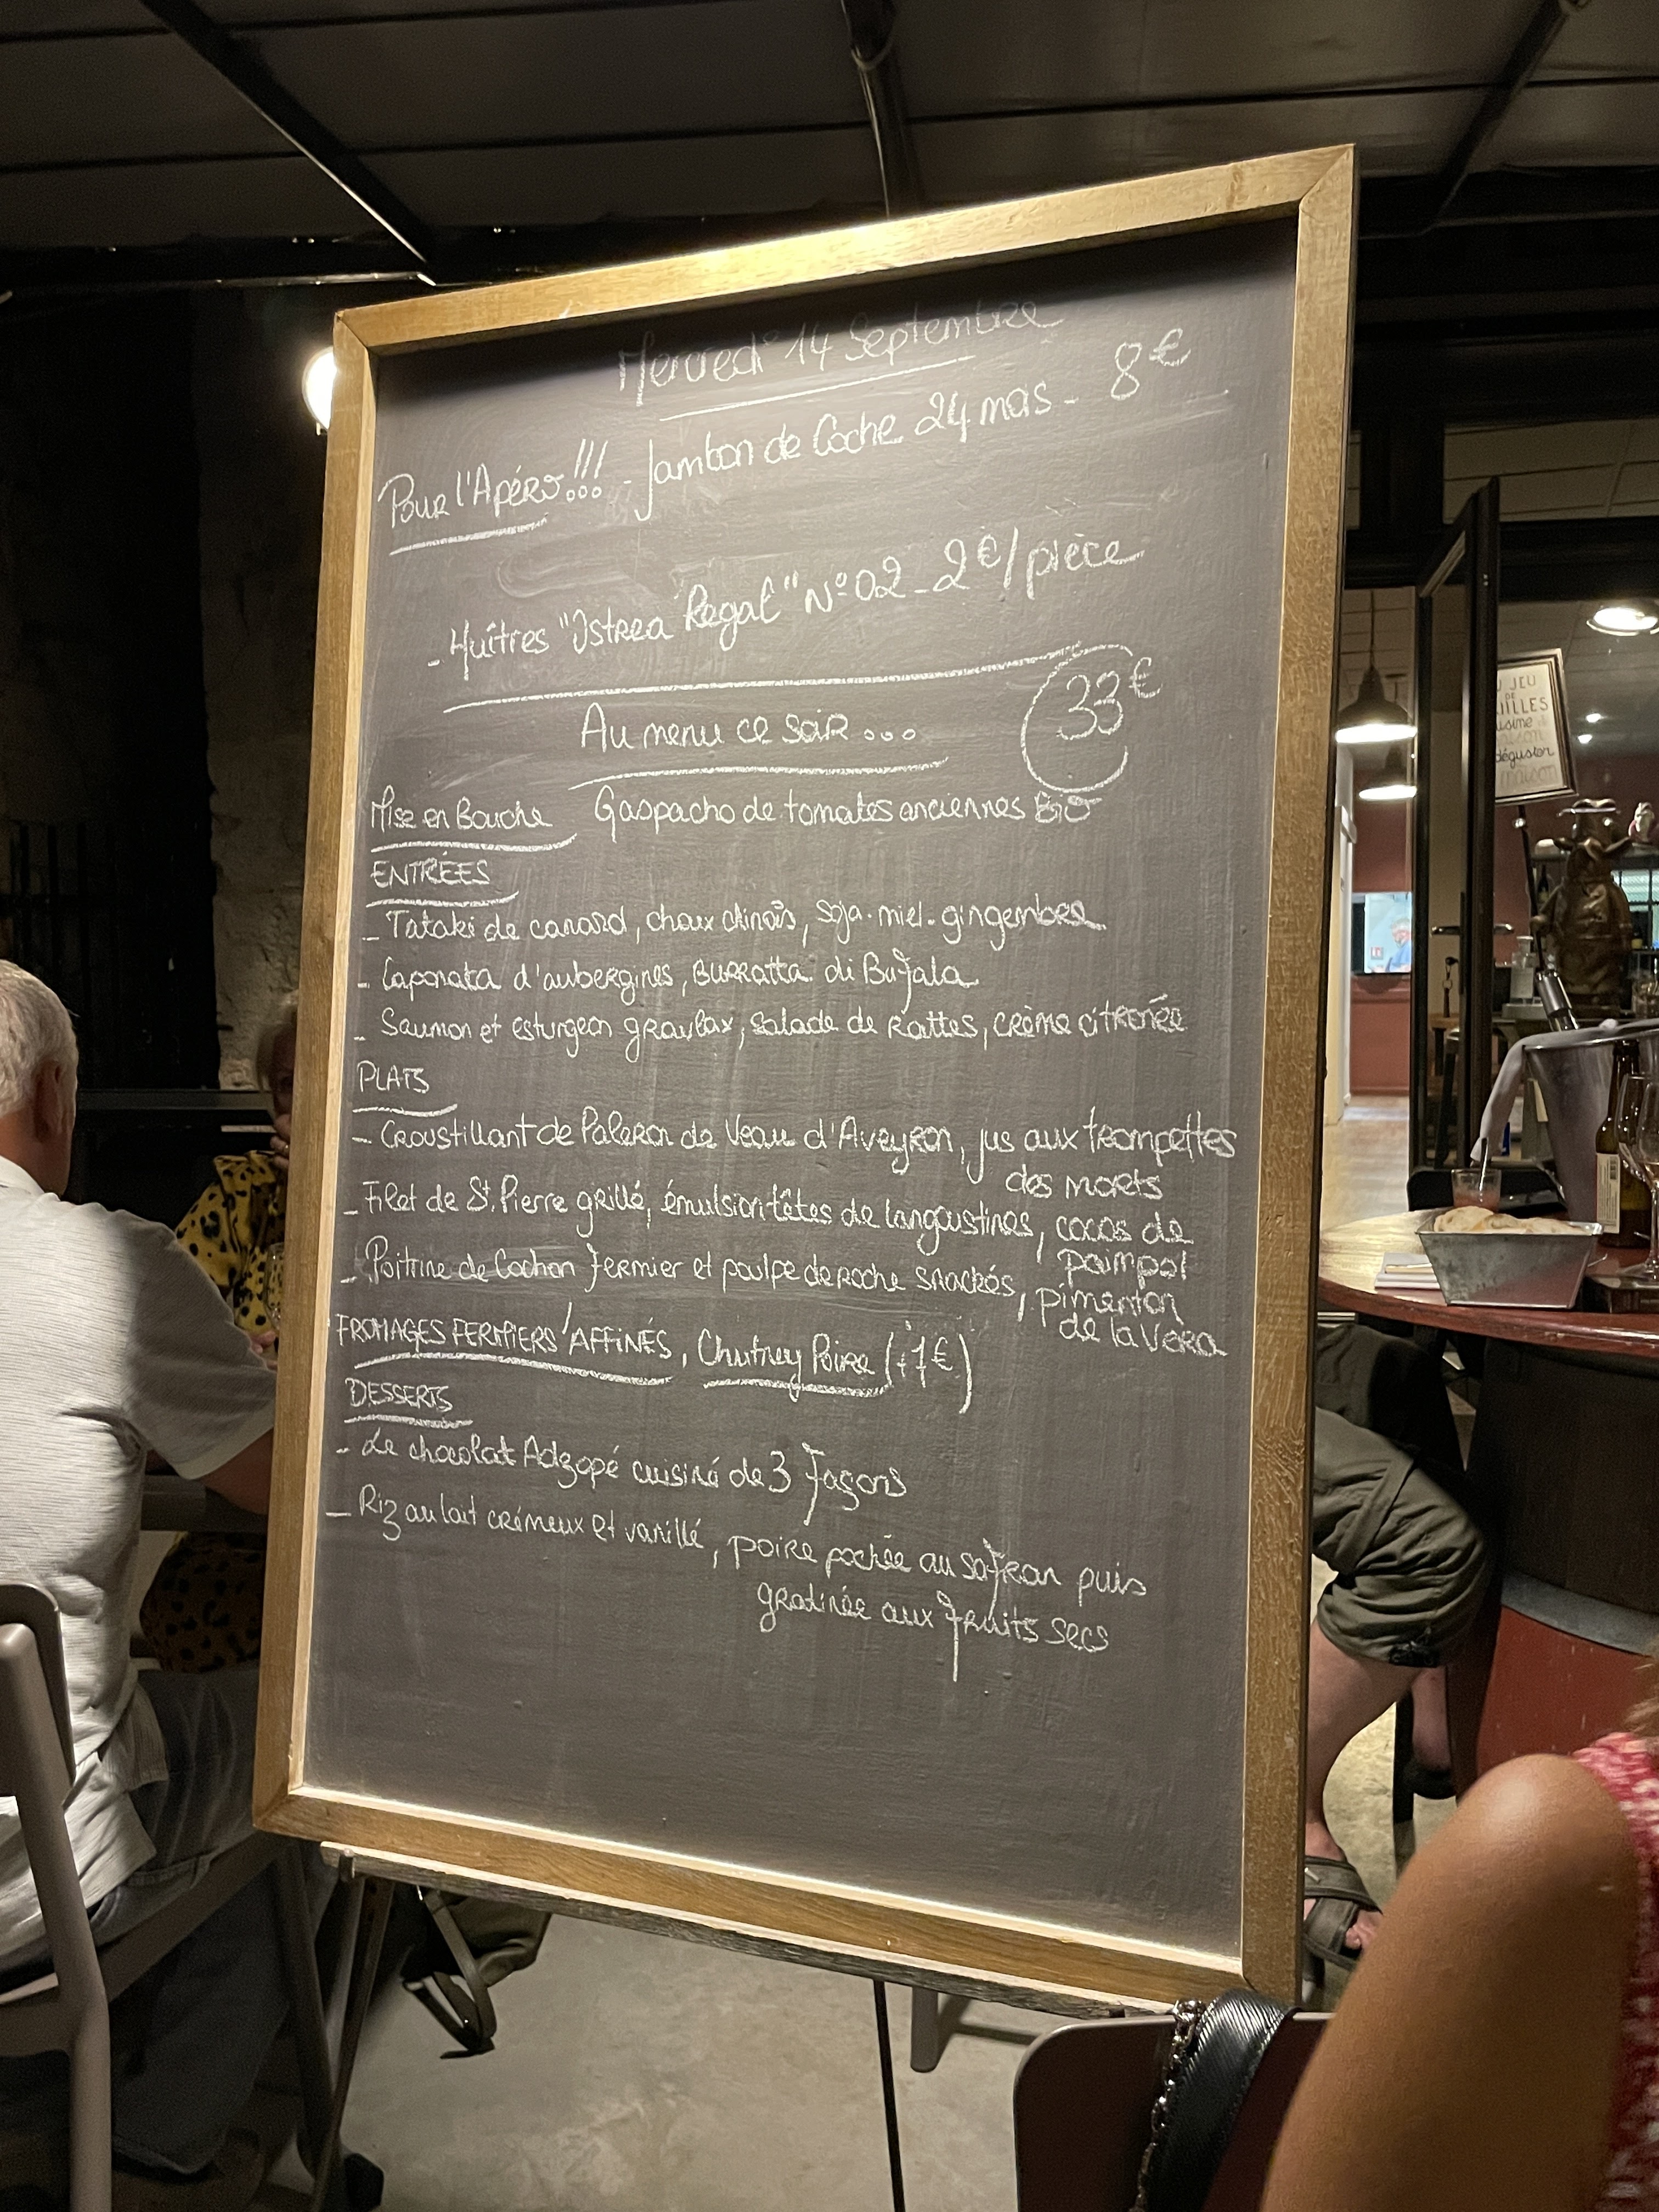 Mercredi 14 Septembre
Pour l'Apéro!!! - Jambon de Coche 24 mois - 8€
- Huîtres "Ostrea Regal" N°02 - 2€/pièce
Au menu ce soir... 33€
Mise en Bouche Gaspacho de tomates anciennes Bio
ENTRÉES
- Tataki de canard, choux chinois, soja-miel-gingembre
- Caponata d'aubergines, Burratta di Bufala
- Saumon et esturgeon gravlax, salade de Rattes, crème citronée
PLATS
- Croustillant de Paleron de Veau d'Aveyron, jus aux trompettes
des morts
- Filet de St. Pierre grillé, émulsion têtes de langoustines, cocos de
paimpol
- Poitrine de Cochon fermier et poulpe de roche snackés, pimenton
de la Vera
FROMAGES FERMIERS AFFINÉS, Chutney Poire (+7€)
DESSERTS
- Le chocolat Adzopé cuisiné de 3 façons
- Riz au lait crémeux et vanillé, poire pochée au safran puis
gratinée aux fruits secs
JEU
DE
dégustor
maison